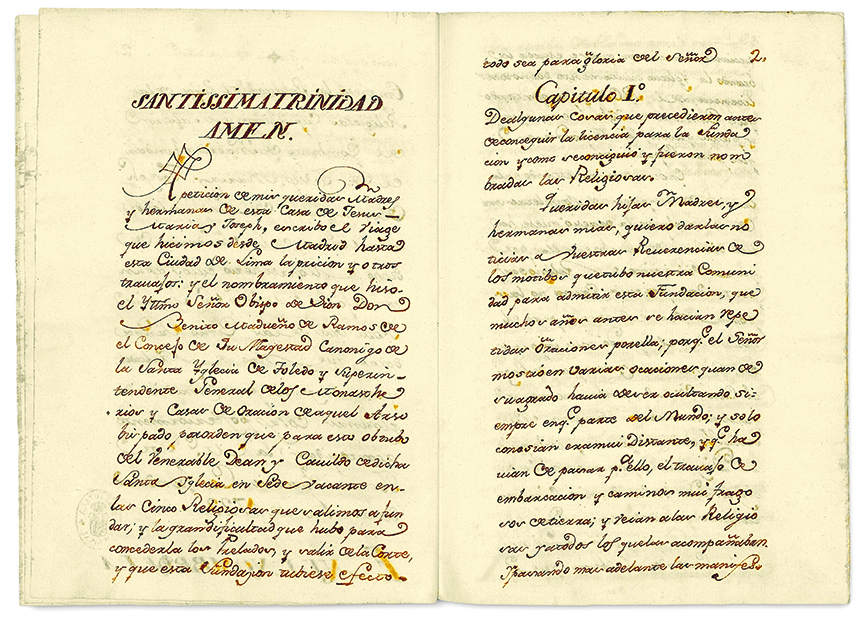 SANTÍSSIMA TRINIDAD
AMEN.
A peticion de mis queridas Madres
y hermanas de esta Casa de Jesus
Maria y Joseph, escribo el Viage
que hicimos desde Madrid hasta
esta Ciudad de Lima la pricion y otros
travajos: y el nombramiento que hiso
el Yttmo Señor Obispo de Sion Don
Benito Madueño de Ramos de
el Concejo de Su Magestad Canonigo de
la Santa Yglecia de Toledo y Superin-
tendente General de los Monasthe
rios y Casas de Oracion de aquel Arso
bispado, por orden que para esto obtubo
del Venerable Dean y Cavildo de dicha
Santa Yglecia en Sede Vacante en-
las Cinco Religiosas que salimos a fun
dar; y la gran dificultad que hubo para
concederla los Prelados, y salir de la Corte,
y que esta Fundasion tubiese efecto.
todo sea para gloria del Señor 2.
Capitulo 1.º
De algunas cosas que precedieron antes
de conseguir la licencia para la Funda
cion y como se conciguio y fueron nom
bradas las Religiosas.
Queridas hijas Madres, y
hermanas mias, quiero darlas no
ticias a Vuestras Reverencias de
los motibos que tubo nuestra Comuni
dad para admitir esta Fundacion, que
muchos años antes se hacian repe
tidas Oraciones por ella; porq.e el Señor
mostró en varias ocaciones quan de
su agrado havia de ser ocultando si-
empre en q.e parte del Mundo; y solo
conosian era mui Distante, y q.e ha
vian de pasar p.a ello, el travajo de
embarcacion y caminos mui frago
sos de tierra; y veian a las Religio
sas y a todos los que las acompañaban.
Y pasando mas adelante las manifes